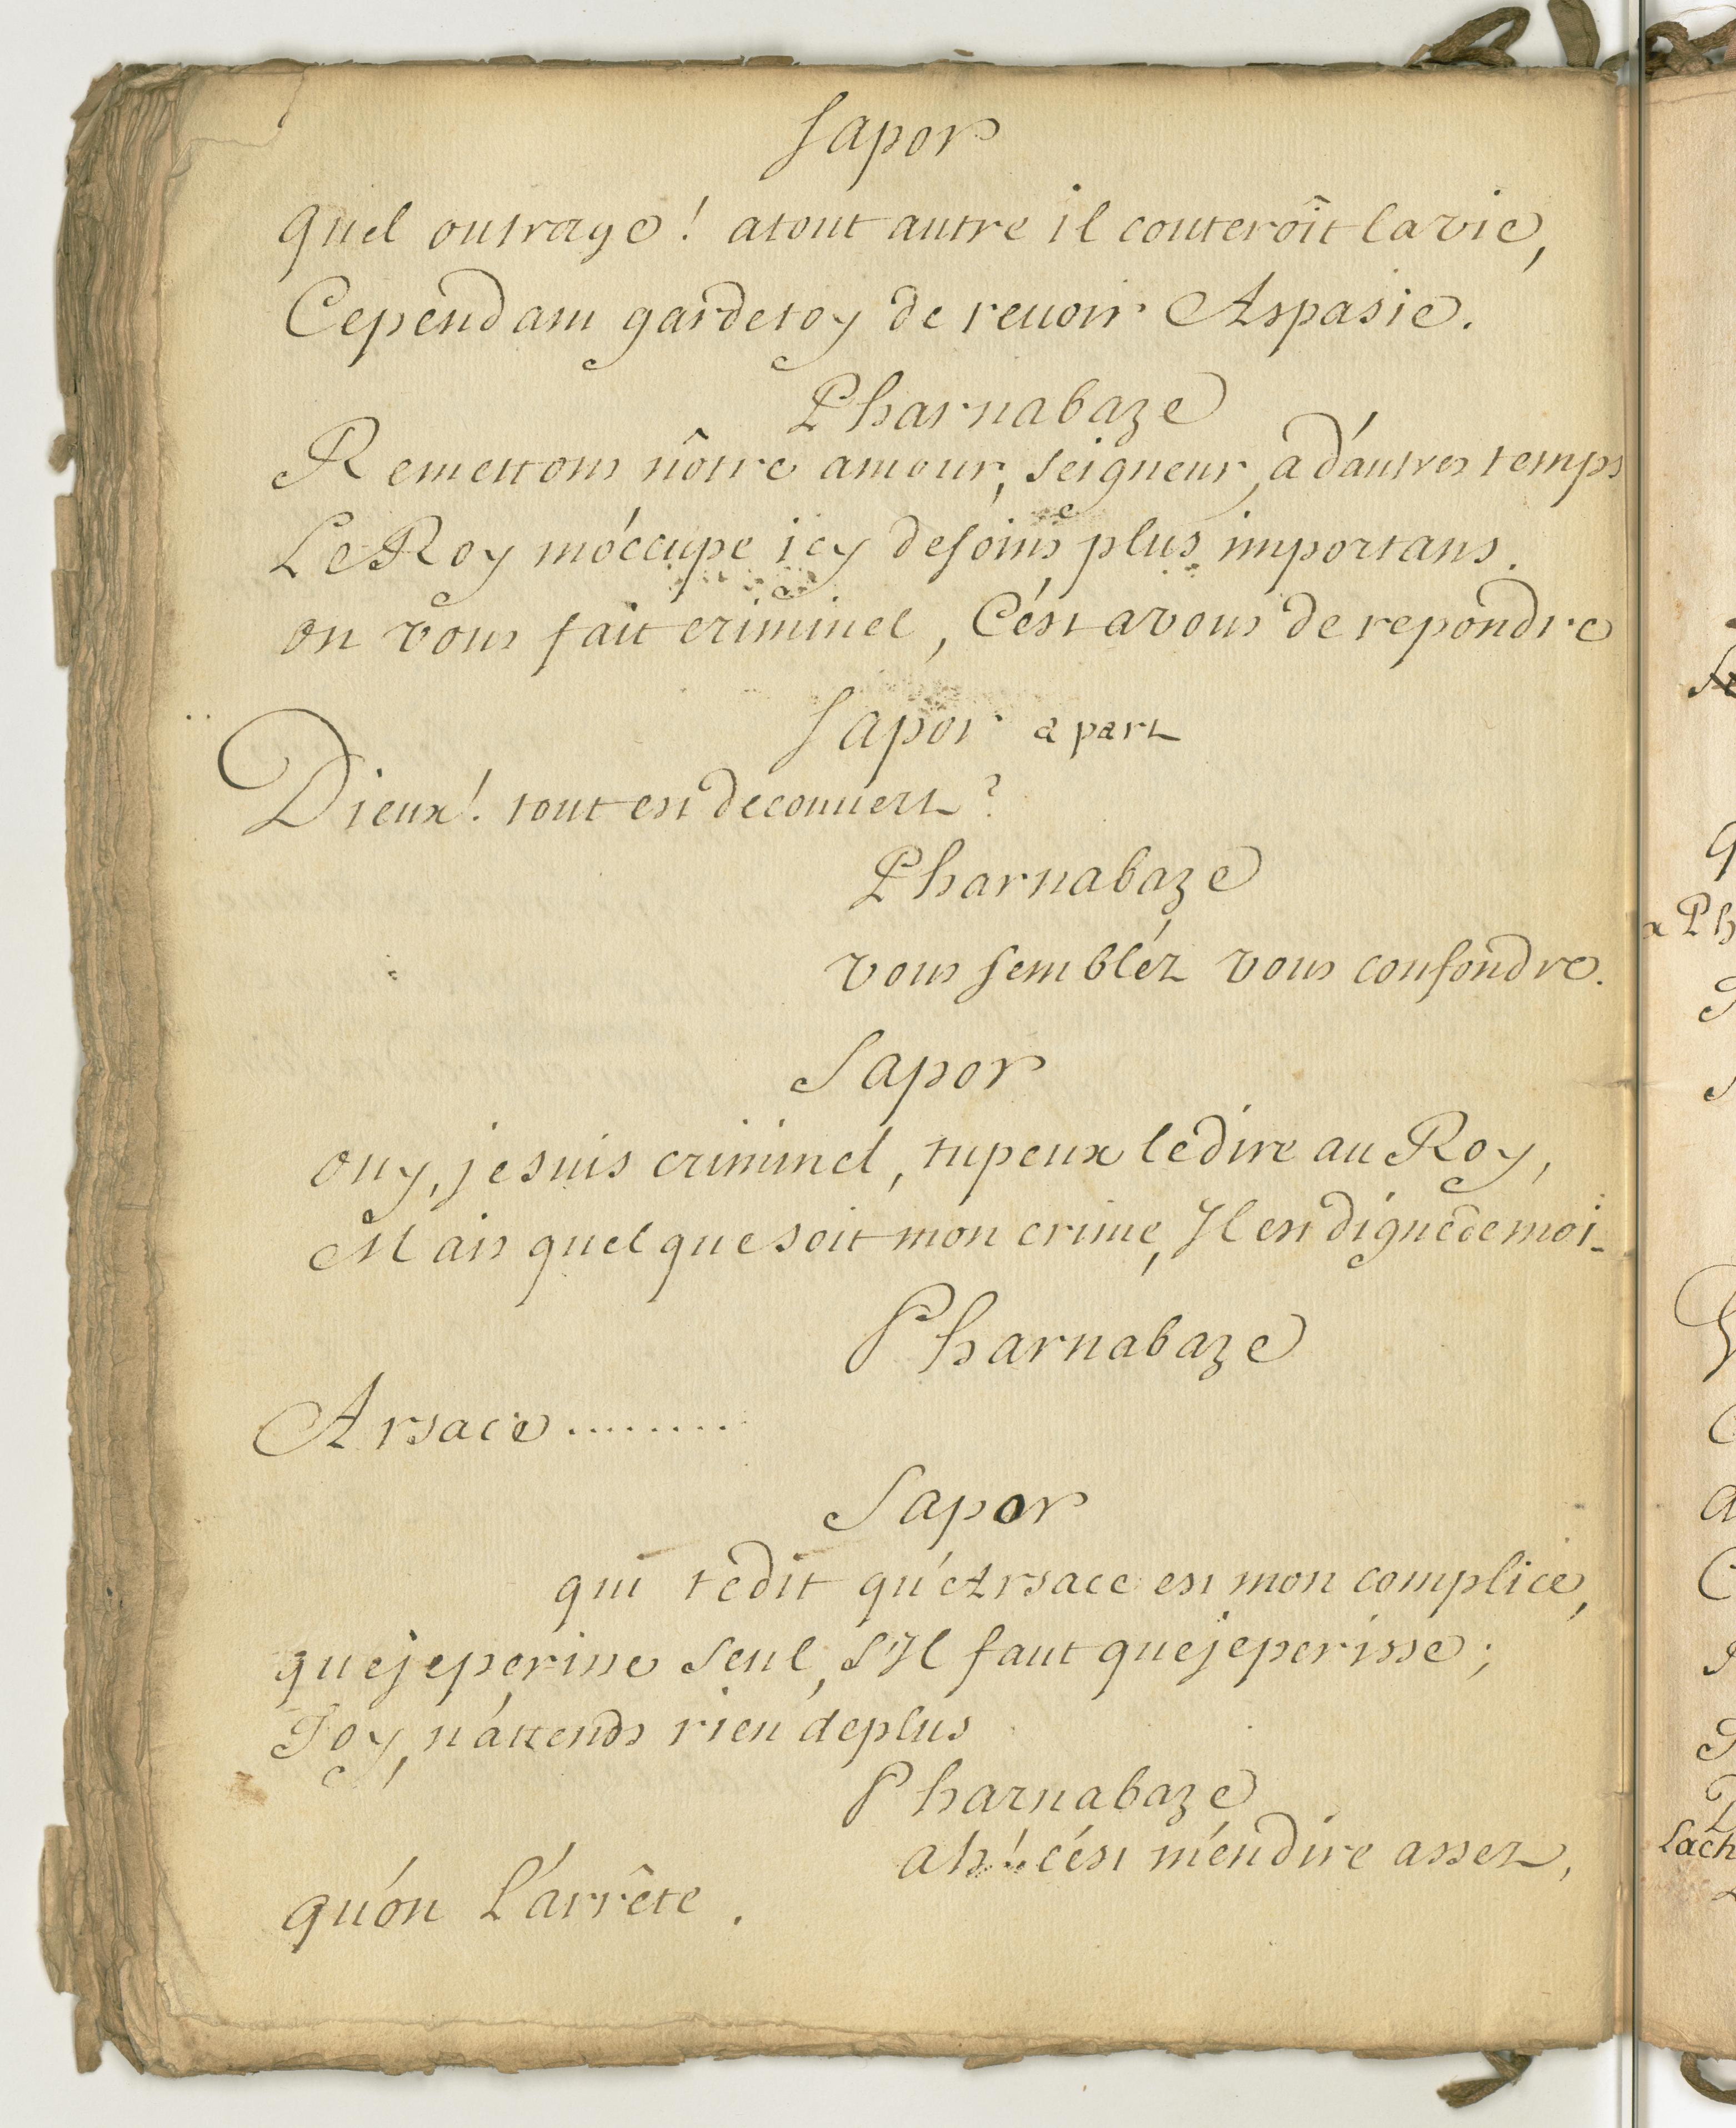 Sapor
quel outrage! atout autre il couteroit lavie,
Cependant gardetoy de revoir Aspasie.
Pharnabaze
Remettons nôtre amour, seigneur, a d'autres temps
Le Roy m'occupe icy desoins plus importans.
on vous fait criminel, C'est avous de repondre
Sapor a part
Dieux! tout est decouvert?
Pharnabaze
vous sembléz vous confondre.
Sapor
ouy, je suis criminel, tupeux ledire au Roy,
Mais quel que soit mon crime, Il est digne de moi
Pharnabaze
Arsace........
Sapor
qui tedit qu'Arsace est mon complice,
quejeperisse seul, s'Il faut quejeperisse;
Toy, n'attends rien deplus
Pharnabaze
ah! c'est m'endire assez,
qu'on L'arrête.